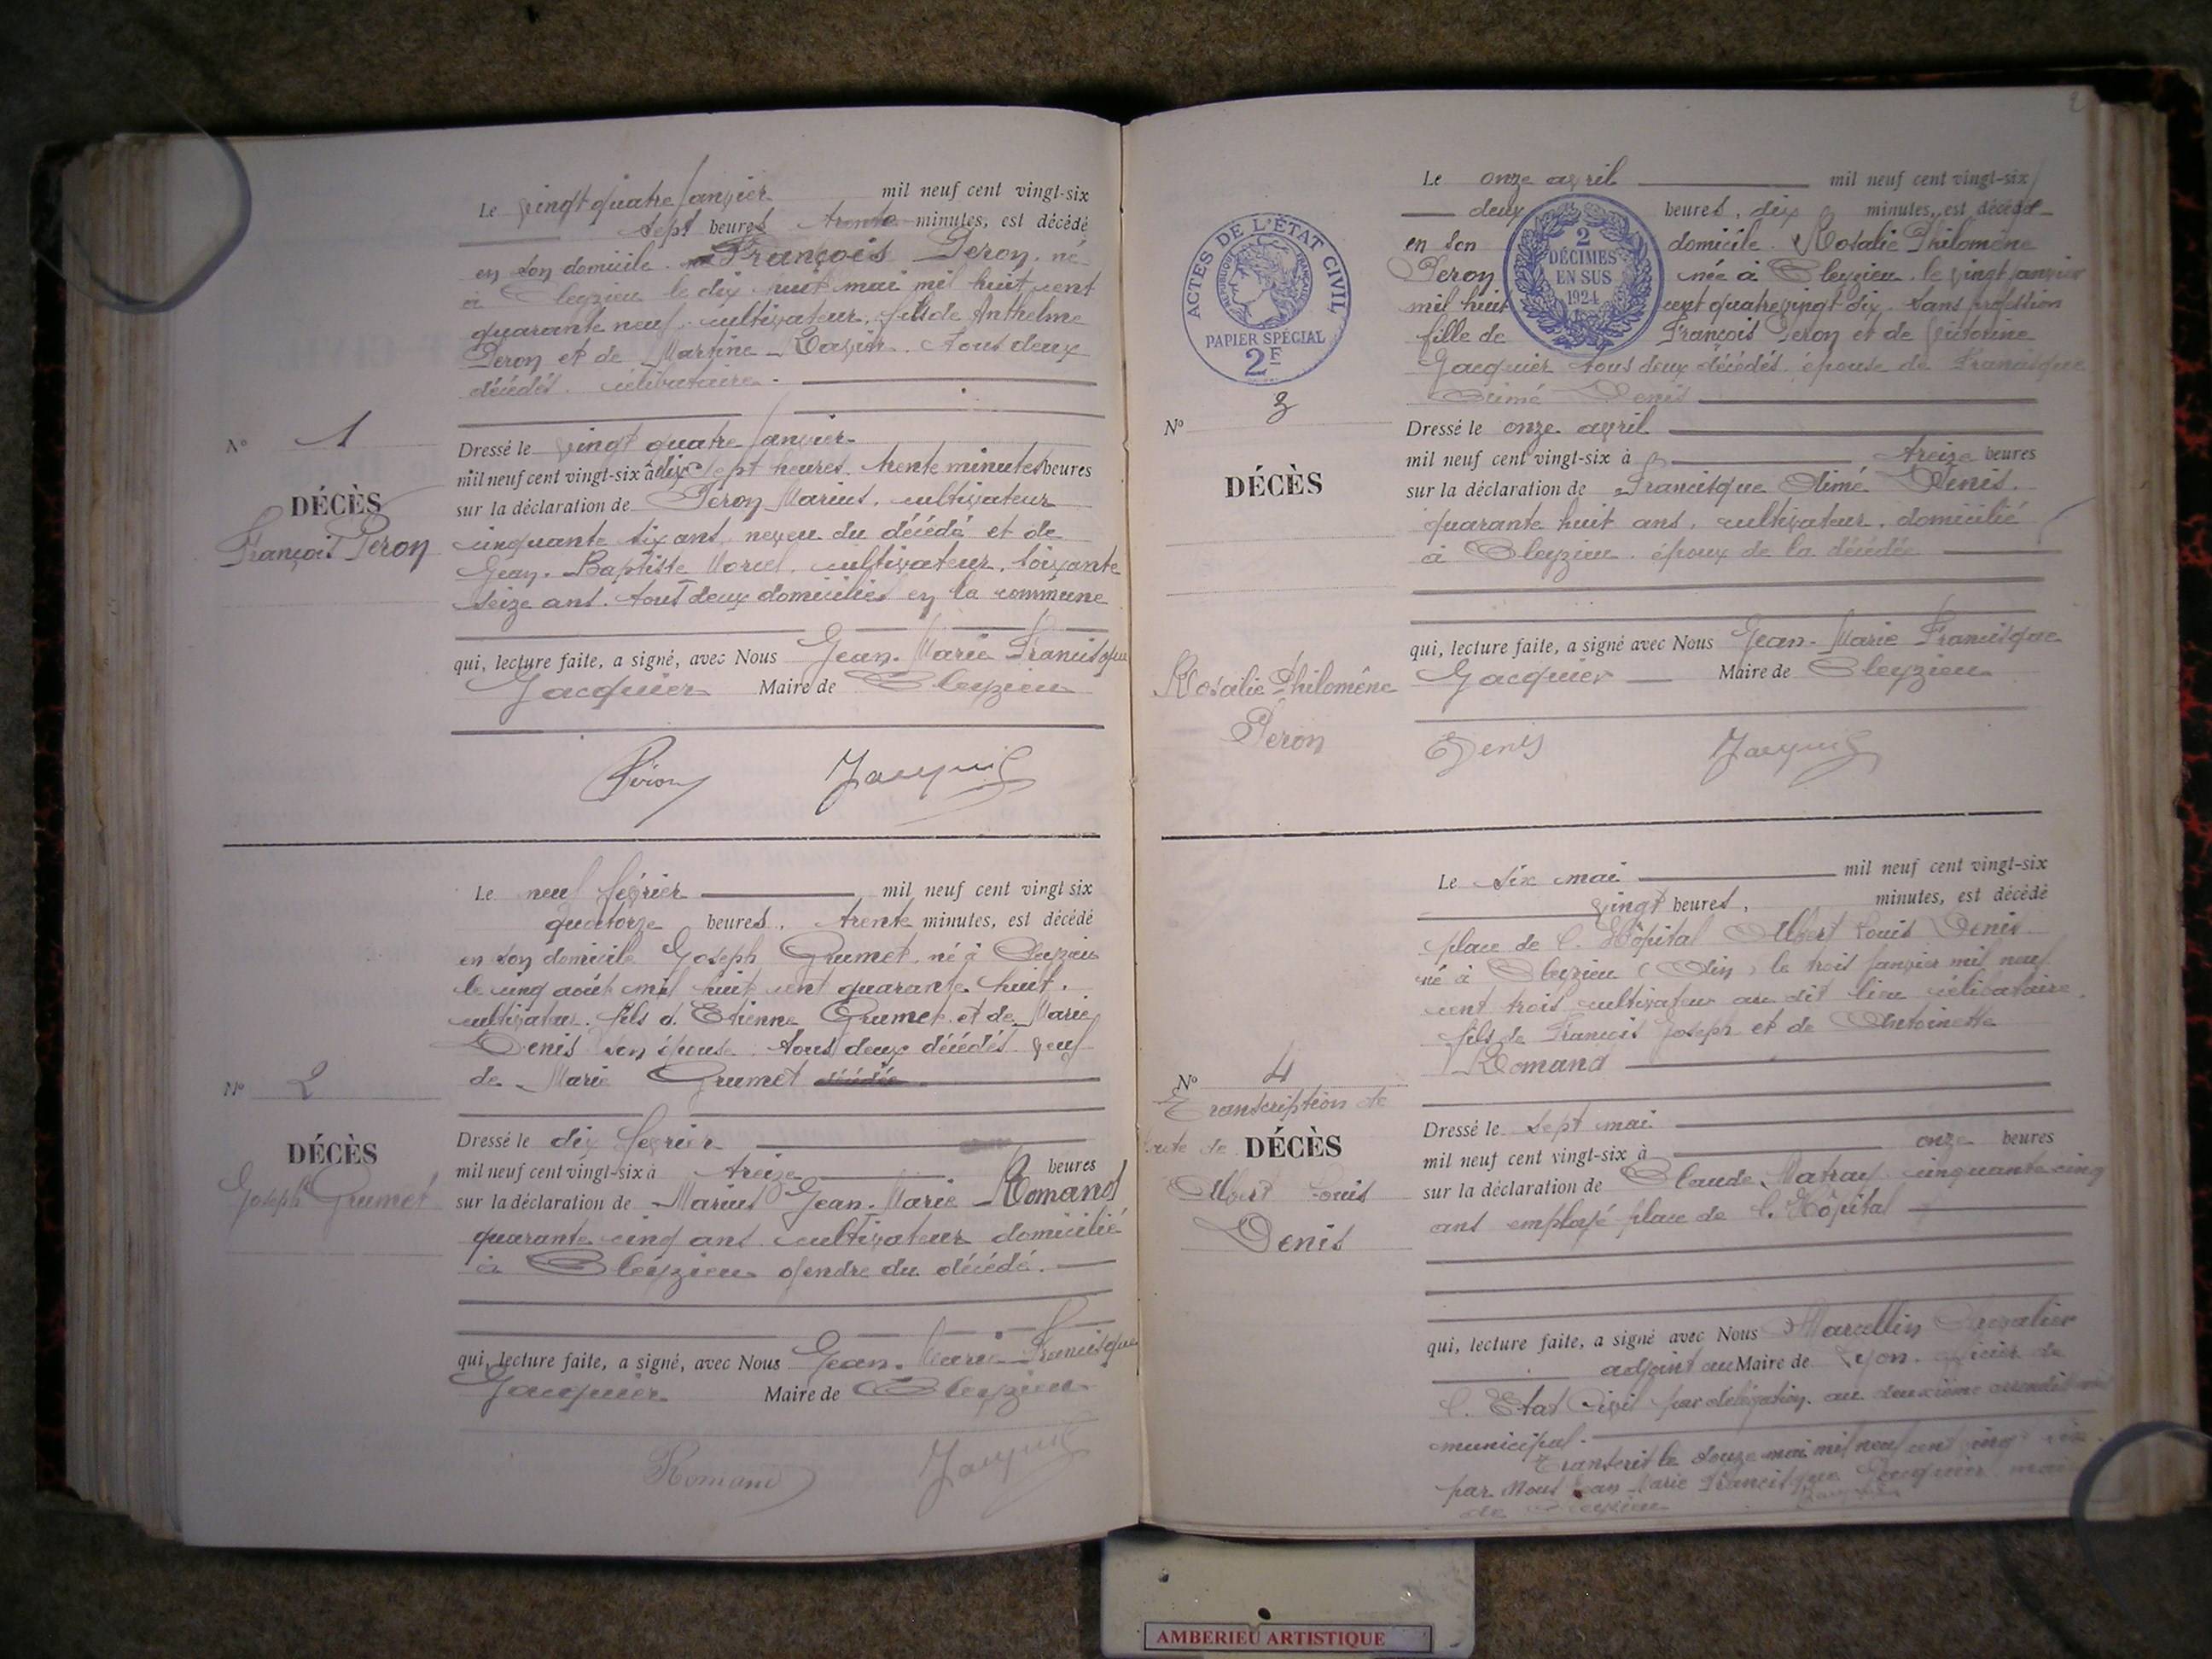 Le vingt quatre janvier mil neuf cent vingt-six
sept heures trente minutes, est décédé
en son domicile François Peron, né
à Cleyzieu le dix huit mai mil huit cent
quarante neuf, cultivateur, fils de Anthelme
Peron et de Martine tous deux
décédés. célibataire.
N° 1
DÉCÈS
François Peron
Dressé le vingt quatre janvier
mil neuf cent vingt-six à dix sept heures trente minutes heures
sur la déclaration de Peron Marius, cultivateur
cinquante six ans, neveu du décédé et de
Jean-Baptiste Morel, cultivateur, soixante
seize ans. tous deux domiciliés en la commune
qui, lecture faite, a signé, avec Nous Jean-Marie Francisque
Jacquier Maire de Cleyzieu
Péron Jacquier
Le neuf février mil neuf cent vingt six
quatorze heures, trente minutes, est décédé
en son domicile Joseph Grumet, né à Cleyzieu
le cinq août mil huit cent quarante huit,
cultivateur. fils d'Etienne Grumet et de Marie
Denis son épouse. tous deux décédés veuf
de Marie Grumet décédée
N° 2
DÉCÈS
Joseph Grumet
Dressé le dix février
mil neuf cent vingt-six à treize heures
sur la déclaration de Marius Jean-Marie Romand
quarante cinq ans cultivateur domicilié
à Cleyzieu gendre du décédé.
qui, lecture faite, a signé, avec Nous Jean-Marie Francisque
Jacquier Maire de Cleyzieu
Romand Jacquier
2
ACTES DE L'ÉTAT CIVIL
RÉPUBLIQUE FRANÇAISE
PAPIER SPÉCIAL
2F
2
DÉCIMES
EN SUS
1924
Le onze avril mil neuf cent vingt-six
deux heures, dix minutes, est décédée
en son domicile. Rosalie Philomène
Peron née à Cleyzieu, le vingt janvier
mil huit cent quatre vingt-dix. sans profession
fille de François Peron et de Victorine
Jacquier tous deux décédés. épouse de Francisque
Aimé Denis
N° 3
DÉCÈS
Rosalie Philomène
Peron
Dressé le onze avril
mil neuf cent vingt-six à treize heures
sur la déclaration de Francisque Aimé Denis.
quarante huit ans, cultivateur, domicilié
à Cleyzieu. époux de la décédée
qui, lecture faite, a signé avec Nous Jean-Marie Francisque
Jacquier Maire de Cleyzieu
Denis Jacquier
Le six mai mil neuf cent vingt-six
vingt heures, minutes, est décédé
place de l'Hôpital Albert Louis Denis
né à Cleyzieu (Ain) le trois janvier mil neuf
cent trois cultivateur au dit lieu célibataire,
fils de François Joseph et de Antoinette
Romand
N° 4
Transcription de
l'acte de DÉCÈS
Albert Louis
Denis
Dressé le sept mai
mil neuf cent vingt-six à onze heures
sur la déclaration de Claude Matray cinquante cinq
ans employé place de l'Hôpital
qui, lecture faite, a signé avec Nous Marcellin Chevalier
adjoint au Maire de Lyon. officier de
l'Etat Civil par délégation, au deuxième arrondissement
municipal.
Transcrit le douze mai mil neuf cent vingt six
par Nous Jean Marie Francisque Jacquier maire
de Cleyzieu
AMBERIEU ARTISTIQUE